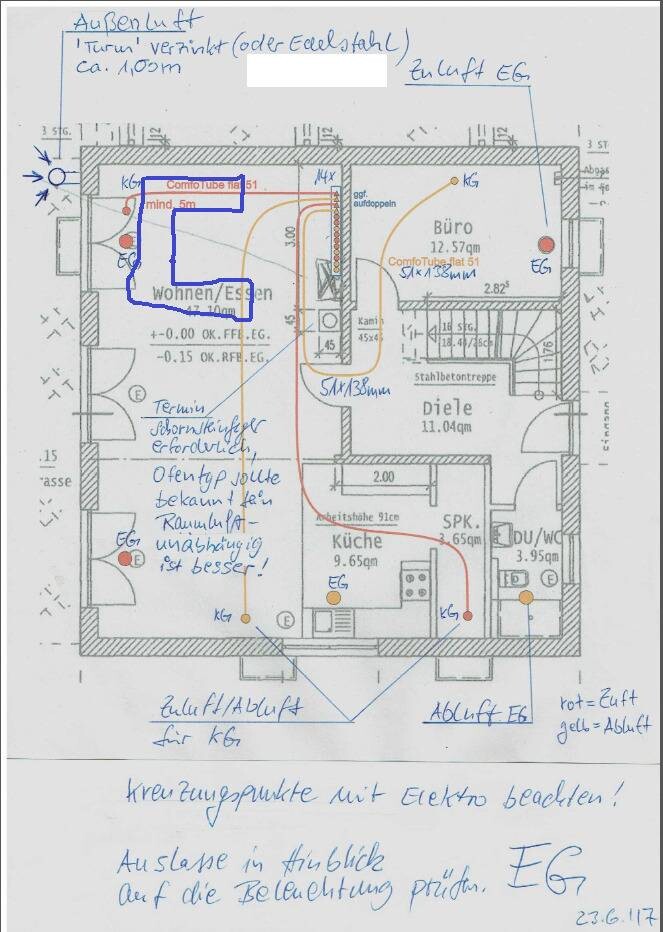 Außenluft
'Turm' verzinkt (oder Edelstahl)
ca. 1,00m
Zuluft EG
3 STG.
12
12
12
3 ST
KG
ComfoTube flat 51
14x
KG
Abgas
mind. 5m
ggf.
aufdoppeln
EG
3.00
Büro
12.57qm
EG
ComfoTube flat 51
51x138mm
2.82⁵
Wohnen/Essen
47.10qm
+-0.00 OK.FFB.EG.
-0.15 OK.RFB.EG.
45
45
Kamin
45x45
16 STG.
1.76
Stahlbetontreppe
51x138mm
E
Diele
11.04qm
Termin
Schornsteinfeger
erforderlich,
Ofentyp sollte
bekannt sein
Raumluft-
unabhängig
ist besser!
.15
asse
2.00
Arbeitshöhe 91cm
Küche
9.65qm
SPK.
3.65qm
DU/WC
3.95qm
EG
E
EG
E
KG
E
KG
Zuluft/Abluft
für KG
Abluft EG
rot = Zuft
gelb = Abluft
Kreuzungspunkte mit Elektro beachten!
Auslasse in Hinblick
auf die Beleuchtung prüfen.
EG
23.6.'17